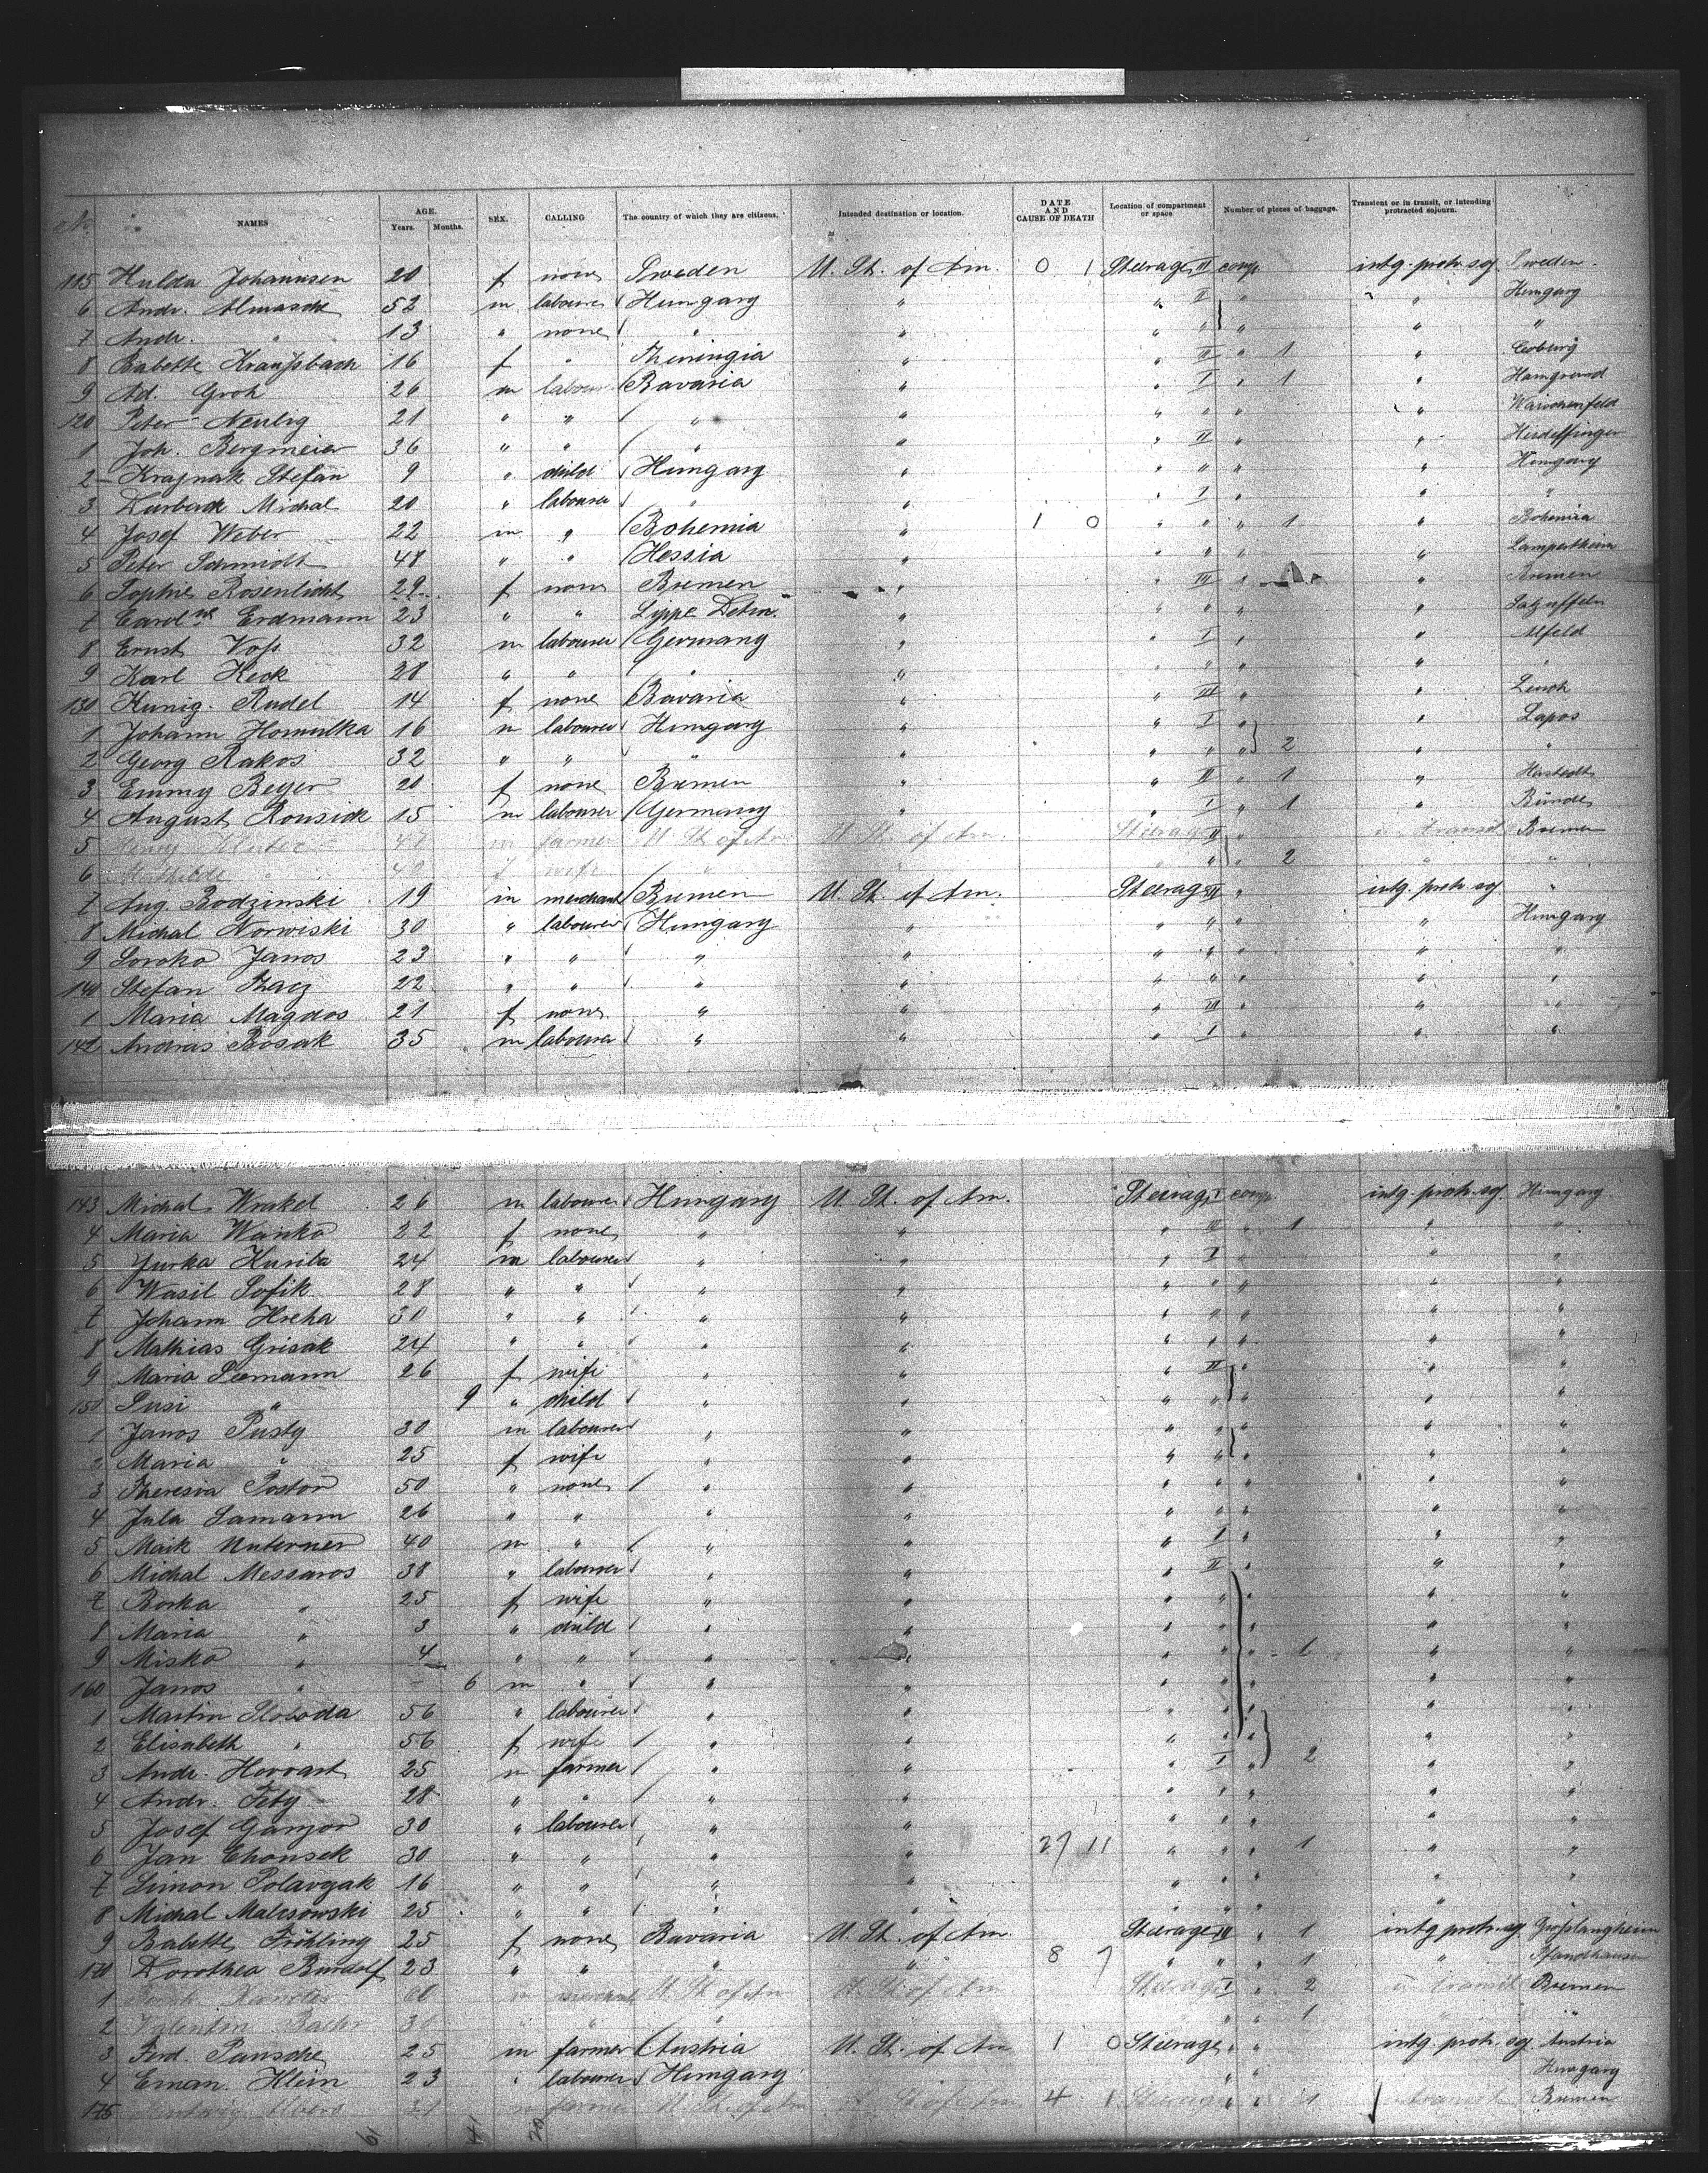 No. NAMES AGE. Years. Months. SEX. CALLING The country of which they are citizens. Intended destination or location. DATE AND CAUSE OF DEATH Location of compartment or space Number of pieces of baggage. Transient or in transit, or intending protracted sojourn.
115 Hulda Johannsen 20 f none Sweden U. St. of Am. 0 1 Steerage III comp. intg. protr. soj Sweden
6 Andr. Almasck 52 m labourer Hungary " " II " " Hungary
7 Andr. " 13 " none " " " " " " "
8 Babette Kraußbach 16 f " Thuringia " " II " 1 " Coburg
9 Ad. Groh 26 m labour Bavaria " " I " 1 "
120 Peter Neubig 21 " " " " " " " " Waischenfeld
1 Joh. Bergmeier 36 " " " " " II "
2 Krajnak Stefan 9 " child Hungary " " " " " Hungary
3 Durback Michal 20 " labourer " " " I " " "
4 Josef Weber 22 m " Bohemia " 1 0 " " " 1 " Bohemia
5 Peter Schmidt 48 " " Hessia " " " " " Lampertheim
6 Sophie Rosenlicht 29 f none Bremen " " III " " Bremen
7 Carolne Erdmann 23 " " Lippe Detm. " " " " " Salzuffeln
8 Ernst Voß 32 m labourer Germany " " I " " Alfeld
9 Karl Heck 28 " " " " " " " " "
130 Kunig. Rudel 14 f none Bavaria " " III " "
1 Johann Homulka 16 m labourer Hungary " " I " " Lapos
2 Georg Rakos 32 " " " " " " " 2 " "
3 Emmy Beyer 20 f none Bremen " " III " 1 " Hastedt
4 August Rousick 15 m labourer Germany " " I " 1 " Bünde
5 Henry 47 m farmer U. St. of Am U. St. of Am. Steerage II " in transit Bremen
6 Mathilde " 48 f wife " " " " " 2 " "
7 Aug. Rodzinski 19 m merchant Bremen U. St. of Am. Steerage II " intg. protr. soj. "
8 Michal Norwiski 30 " labourer Hungary " " " " " Hungary
9 Soroka Janos 23 " " " " " " " " "
140 Stefan Bacz 22 " " " " " " " " "
1 Maria Magdos 21 f none " " " III " " "
142 Andras Bosak 35 m labourer " " " I " " "
143 Michal Wrakel 26 m labourer Hungary U. St. of Am. Steerage I comp. intg. protr. soj. Hungary
4 Maria Wanko 22 f none " " " III " 1 " "
5 Jurka Kurila 24 m labourer " " " I " " "
6 Wasil Sofik 28 " " " " " " " " "
7 Johann Hreha 30 " " " " " " " " "
8 Mathias Grisak 24 " " " " " " " " "
9 Maria Seemann 26 f wife " " " II " " "
150 Susi " 9 " child " " " " " " "
1 Janos Pusty 30 m labourer " " " " " " "
2 Maria " 25 f wife " " " " " " "
3 Theresia Postor 50 " none " " " " " " "
4 Jula Samann 26 " " " " " " " " "
5 Maik Unterner 40 m " " " " I " " "
6 Michal Messaros 38 " labourer " " " II " " "
7 Borka " 25 f wife " " " " " " "
8 Maria " 3 " child " " " " " " "
9 Misko " 4 " " " " " " " 1 " "
160 Janos " - 6 m " " " " " " " "
1 Martin Sloboda 56 " labourer " " " " " " "
2 Elisabeth " 56 f wife " " " " " " "
3 Andr. Horvart 25 m farmer " " " I " 2 " "
4 Andr. Fety 28 " " " " " " " " "
5 Josef Ganzor 30 " labourer " " " " " " "
6 Jan Chonsek 30 " " " " 27 11 " " " 1 " "
7 Simon Polavzak 16 " " " " " " " " "
8 Michal Malisowski 25 " " " " " " " " "
9 Babette Fröhling 25 f none Bavaria U. St. of Am. Steerage III " 1 intg protr. soj Großlangheim
170 Dorothea Burdolf 23 " " " " 8 7 " " " 1 "
1 60 m merchant U. St. of Am U. St. of Am Steerage I " 2 in transit Bremen
2 Valentin 30 " " " " " " " 1 " "
3 Ferd. Pansche 25 m farmer Austria U. St. of Am 1 0 Steerage " " intg. protr. soj. Austria
4 Eman. Klein 23 " labourer Hungary " " " Hungary
175 31 m farmer U. St. of Am U. St. of Am 4 1 Steerage " " 1 in transit Bremen